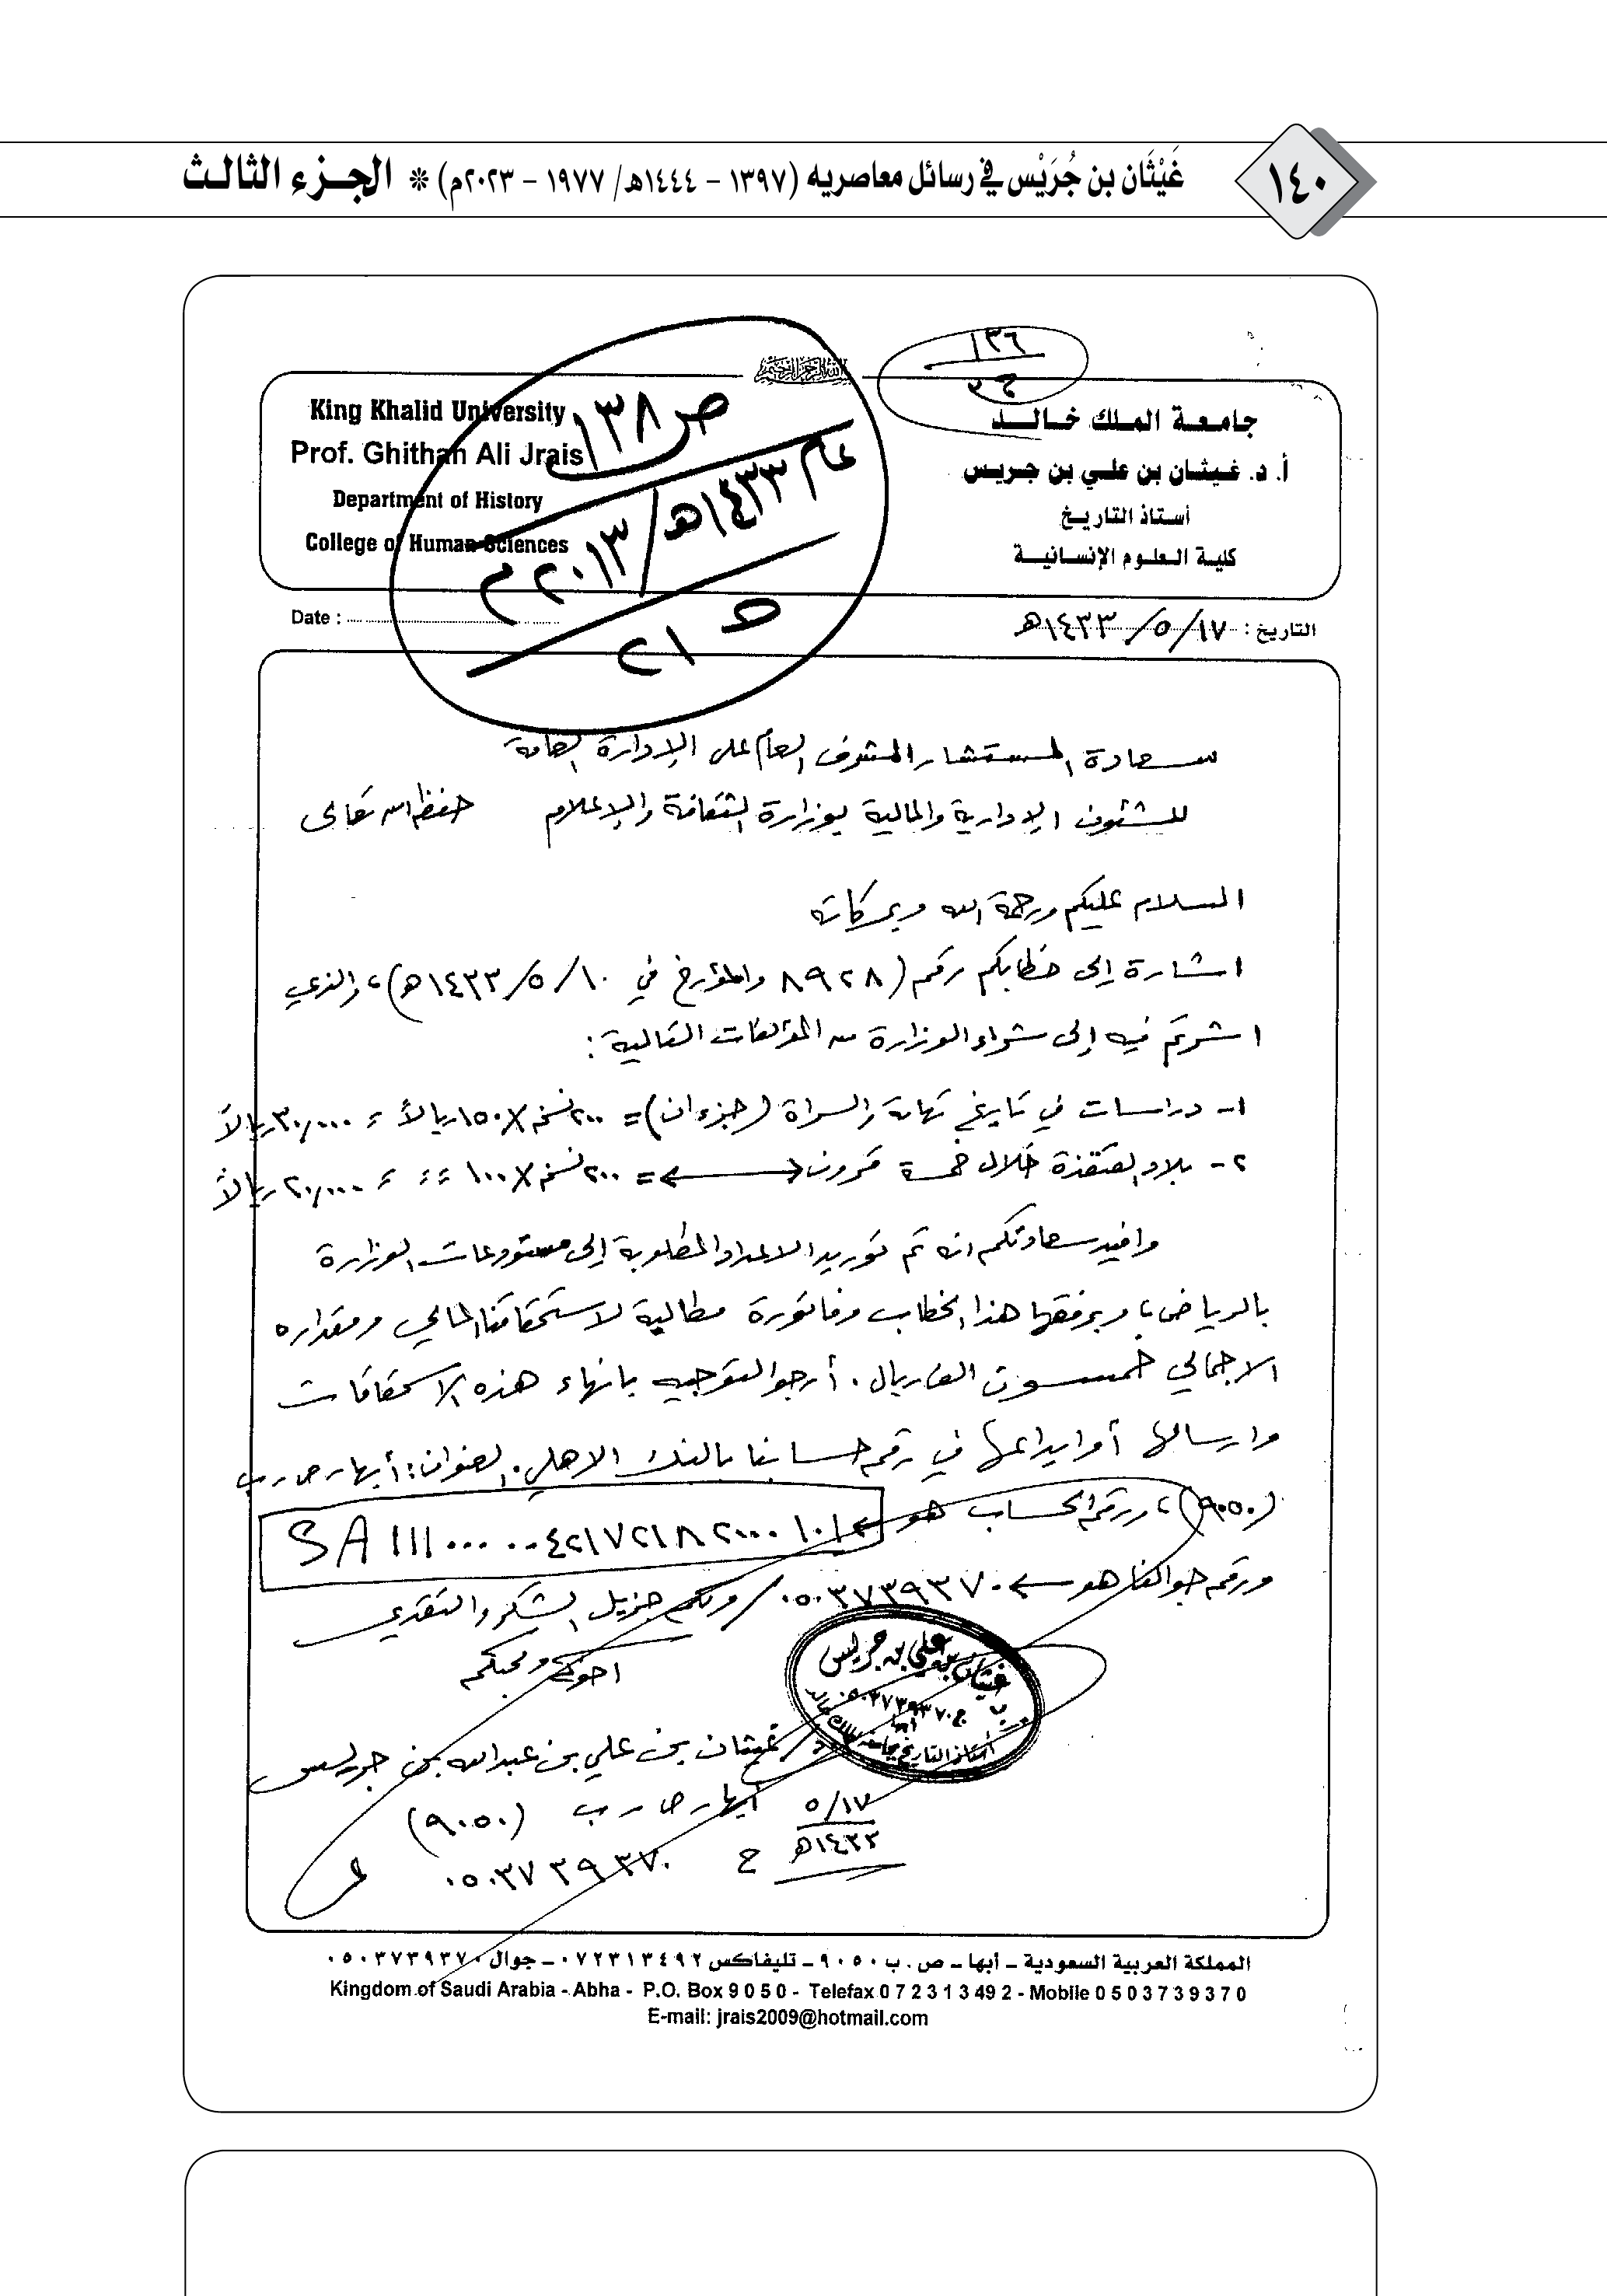 ١٤٠
غَيْثَان بن جُرَيْس في رسائل معاصريه (١٣٩٧ - ١٤٤٤هـ/ ١٩٧٧ - ٢٠٢٣م) * الجزء الثالث
١٣٦
ص ١٣٨
عام ١٤٣٣هـ/٢٠١٣م
جامعة الملك خالد
أ. د. غيثان بن علي بن جريس
أستاذ التاريخ
كلية العلوم الإنسانية
King Khalid University
Prof. Ghithan Ali Jrais
Department of History
College of Human Sciences
التاريخ : ١٧/٥/١٤٣٣هـ
Date :
سعادة المستشار المشرف العام على الإدارة العامة
للشئون الإدارية والمالية بوزارة الثقافة والإعلام حفظه الله تعالى
السلام عليكم ورحمة الله وبركاته
اشارة إلى خطابكم رقم (٨٩٢٨ والمؤرخ في ١٠/٥/١٤٣٣هـ)، والذي
اشرتم فيه إلى شراء الوزارة من المؤلفات التالية :
١- دراسات في تاريخ تهامة والسراة (جزءان) = ٢٠٠ نسخة X ١٥٠ ريالاً = ٣٠,٠٠٠ ريالاً
٢- بلاد القنفذة خلال خمسة قرون = ٢٠٠ نسخة X ١٠٠ = = = ٢٠,٠٠٠ ريالاً
وافيد سعادتكم انه تم توريد الاعداد المطلوبة إلى مستودعات الوزارة
بالرياض، وبرفقها هذا الخطاب وفاتورة مطالبة لاستحقاقنا المالي ومقداره
الاجمالي خمسون الف ريال. أرجو التوجيه بانهاء هذه الاستحقاقات
وارسالها أو ايداعها في رقم حسابنا بالبنك الاهلي. العنوان: أبها ص ب
(٩٠٥٠)، ورقم الحساب هو ← SA ١١١٠٠٠٠٠٠٤٢١٧٢١٨٢٠٠٠١٠١
ورقم جوالنا هو ← ٠٥٠٣٧٣٩٣٧٠ / ولكم جزيل الشكر والتقدير
اخوكم ومحبكم
غيثان بن علي بن جريس
ج ٠٥٠٣٧٣٩٣٧٠
أبها
أستاذ التاريخ بجامعة الملك خالد
د/ غيثان بن علي بن عبدالله بن جريس
١٧/٥
١٤٣٣هـ
أبها ص ب (٩٠٥٠)
ج ٠٥٠٣٧٣٩٣٧٠
المملكة العربية السعودية – أبها – ص . ب ٩٠٥٠ – تليفاكس ٠٧٢٣١٣٤٩٢ – جوال ٠٥٠٣٧٣٩٣٧٠
Kingdom of Saudi Arabia - Abha - P.O. Box 9 0 5 0 - Telefax 0 7 2 3 1 3 4 9 2 - Mobile 0 5 0 3 7 3 9 3 7 0
E-mail: jrais2009@hotmail.com